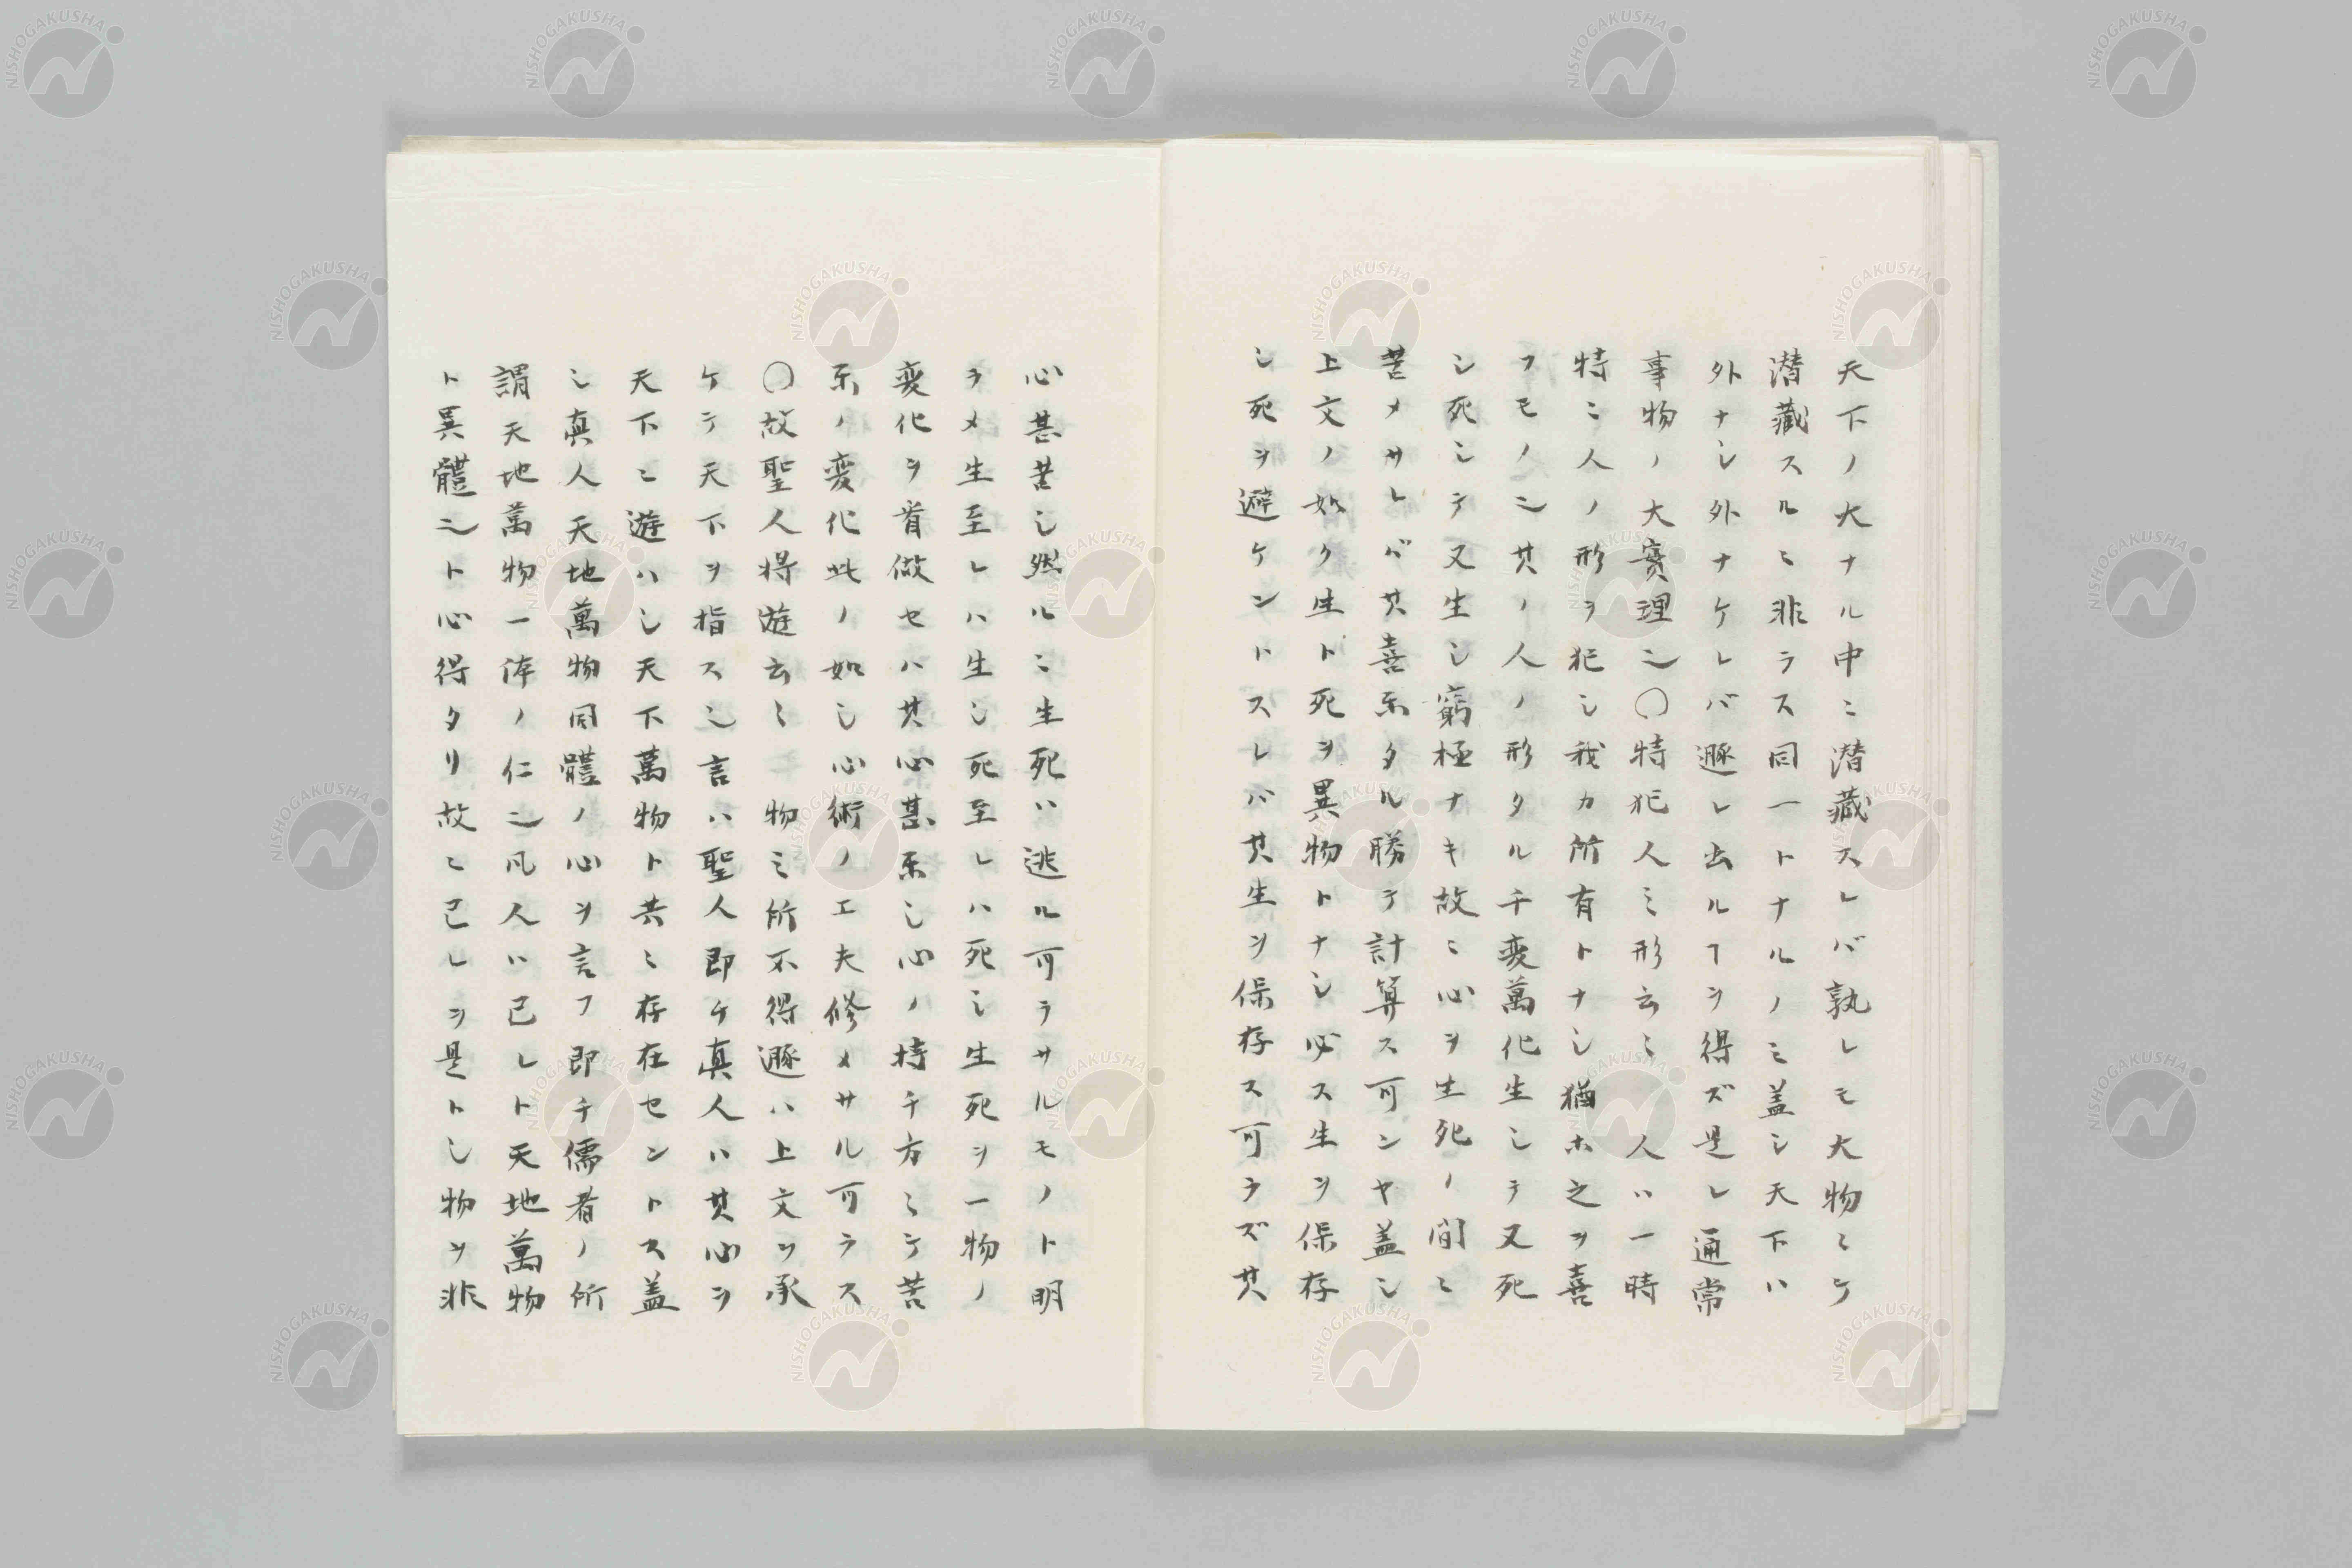 天下ノ大ナル中ニ潜藏スレバ孰レモ大物ニテ
潜藏スルニ非ラス同一トナルノミ盖シ天下ハ
外ナシ外ナケレバ遯レ出ルヿヲ得ズ是レ通常
事物ノ大實理也〇特犯人之形云々 人ハ一時
特ニ人ノ形ヲ犯シ我カ所有トナシ猶ホ之ヲ喜
フモノ也其ノ人ノ形タル千変萬化生シテ又死
シ死シテ又生シ窮極ナキ故ニ心ヲ生死ノ間ニ
苦メサレバ其喜楽タル勝テ計算ス可ンヤ盖シ
上文ノ如ク生ト死ヲ異物トナシ必ス生ヲ保存
シ死ヲ避ケントスレバ其生ヲ保存ス可ラズ其
心甚苦シ然ルニ生死ハ逃ル可ラサルモノト明
ラメ生至レハ生シ死至レハ死シ生死ヲ一物ノ
変化ヲ看做セハ其心甚楽シ心ノ持チ方ニテ苦
楽ノ変化此ノ如シ心術ノ工夫修メサル可ラス
〇故聖人将遊云々 物之所不得遯ハ上文ヲ承
ケテ天下ヲ指ス也言ハ聖人即チ真人ハ其心ヲ
天下ニ遊ハシ天下萬物ト共ニ存在セントス盖
シ真人天地萬物同體ノ心ヲ言フ即チ儒者ノ所
謂天地萬物一体ノ仁也凡人ハ己レト天地萬物
ト異體也ト心得タリ故ニ己レヲ是トシ物ヲ非
NISHOGAKUSHA